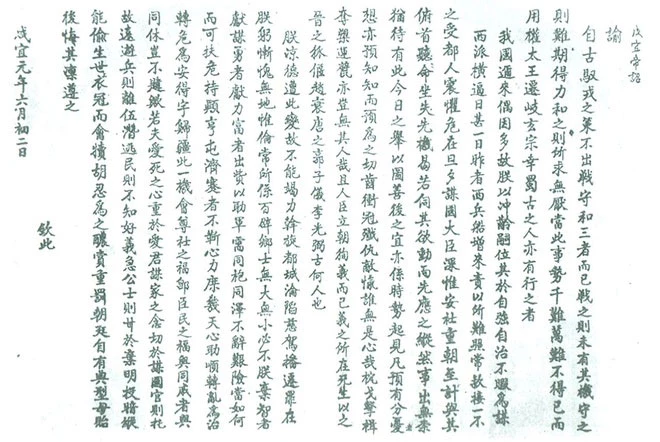 咸宜帝詔
諭
自古馭戎之策不出戰守和三者而已戰之則未有其機守之
則難期得力和之則所求無厭當此事勢千難萬難不得已而
用權太王遷岐玄宗幸蜀古之人亦有行之者
我國邇來偶因多故朕以冲齡嗣位其於自強自治不暇為謀
西派橫逼日甚一日昨者西兵船增來責以所難照常款接一不
之受都人震懼危在旦夕謀國大臣深惟安社重朝至計與其
俯首聽命坐失先機曷若伺其欲動而先應之縱然事出無柰
猶待有此今日之舉以圖善後之宜亦係時勢起見凡預有分憂
想亦預知知而預為之切齒衝冠殲仇敵愾誰無是心哉枕戈擊楫
奪槊運甓亦豈無其人哉且人臣立朝徇義而已義之所在死生以之
晉之狐偃趙衰唐之郭子儀李光弼古何人也
朕涼德遭此變故不能竭力斡旋都城淪陷慈駕播遷罪在
朕躬慚愧無地惟倫常所係百辟卿士無大無小必不朕棄智者
獻謀勇者獻力富者出貲以助軍需同袍同澤不辭艱險當如何
而可扶危持顛亨屯濟蹇者不靳心力庶幾天心助順轉亂為治
轉危為安得字歸疆此一機會尊社之福卽臣民之福與同戚者與
同休豈不趣歟若夫愛死之心重於愛君謀家之念切於謀國官則托
故遠避兵則離伍潛逃民則不知好義急公士則甘於棄明投暗縱
能偷生世衣冠而禽犢胡忍為之醲賞重罰朝廷自有典型毋貽
後悔其凜遵之
欽此
咸宜元年六月初二日